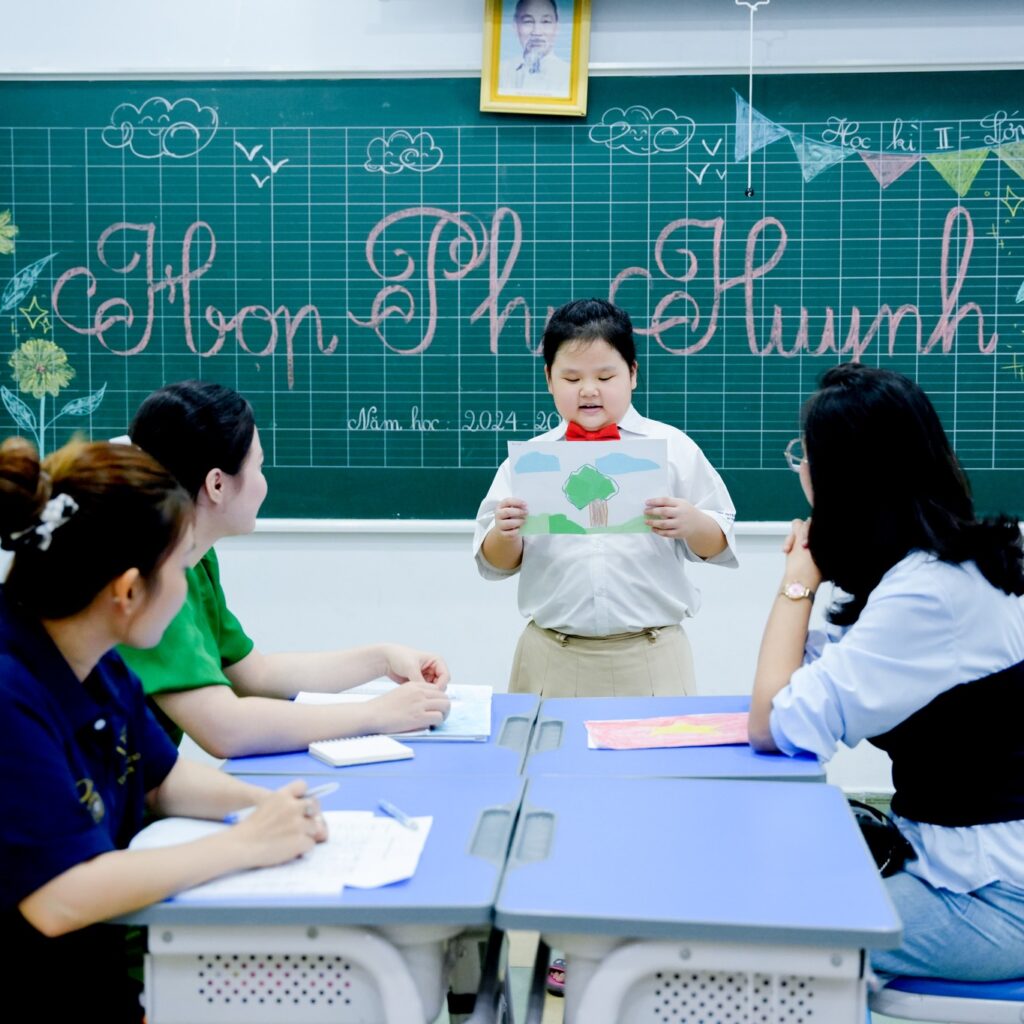 Học kì II - Lớp
Họp Phụ Huynh
Năm học : 2024 - 20